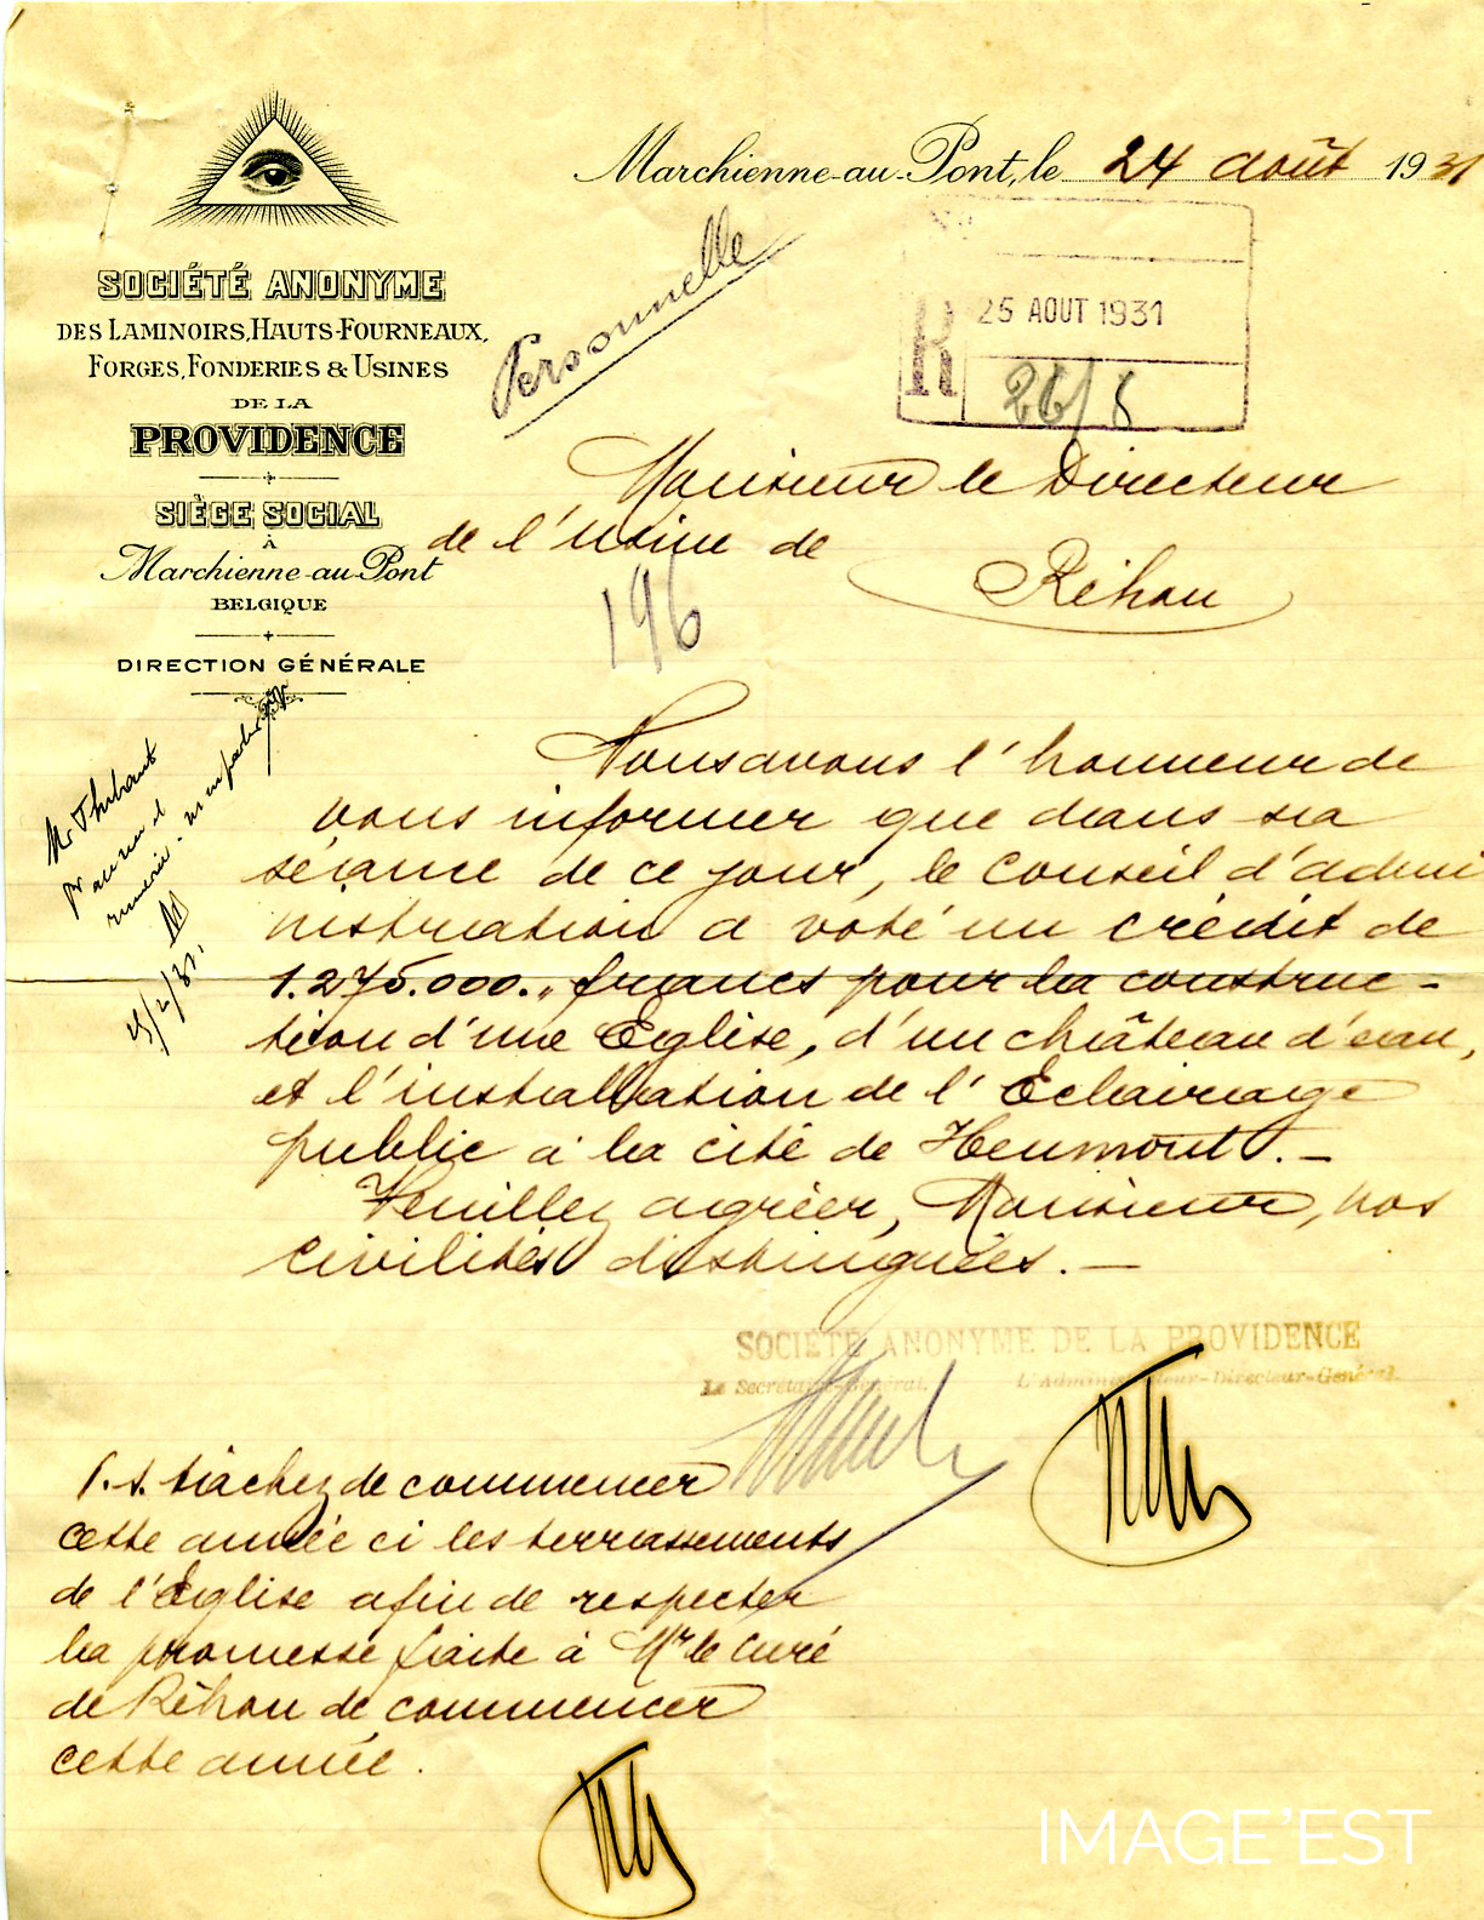 Marchienne-au-Pont, le 24 août 1931
SOCIÉTÉ ANONYME
DES LAMINOIRS, HAUTS-FOURNEAUX,
FORGES, FONDERIES & USINES
DE LA
PROVIDENCE
SIÈGE SOCIAL
À
Marchienne-au-Pont
BELGIQUE
DIRECTION GÉNÉRALE
Personnelle
N°
R
25 AOUT 1931
26/8
Monsieur le Directeur
de l'usine de
Réhon
196
Mr Thibaut
Nous avons l'honneur de
vous informer que dans sa
séance de ce jour, le Conseil d'admi
nistration a voté un crédit de
1.275.000.„ francs pour la construc-
tion d'une Eglise, d'un château d'eau,
et l'installation de l'Eclairage
public à la cité de Heumont. -
Veuillez agréer, Monsieur, nos
civilités distinguées. -
SOCIÉTÉ ANONYME DE LA PROVIDENCE
Le Secrétaire-Général.
L'Administrateur-Directeur-Général.
P.S. tâchez de commencer
cette année ci les terrassements
de l'Eglise afin de respecter
la promesse faite à Mr le Curé
de Réhon de commencer
cette année.
IMAGE'EST